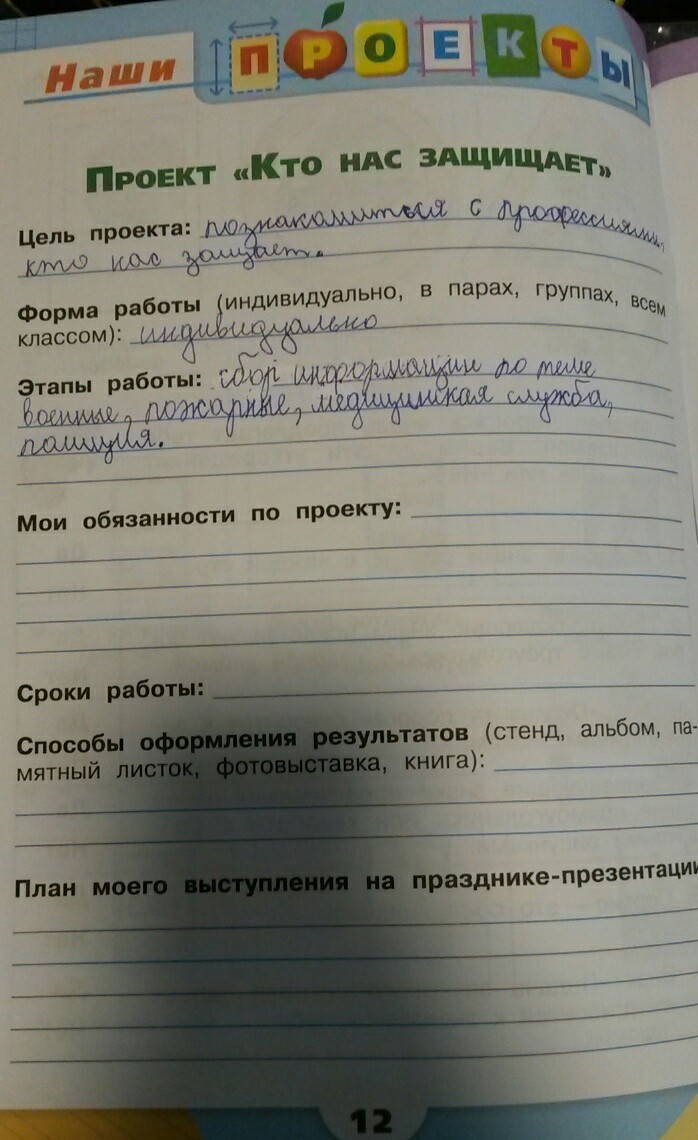 Наши ПРОЕКТЫ
ПРОЕКТ «КТО НАС ЗАЩИЩАЕТ»
Цель проекта: познакомиться с профессиями,
кто нас защищает.
Форма работы (индивидуально, в парах, группах, всем
классом): индивидуально
Этапы работы: сбор информации по теме
военные, пожарные, медицинская служба,
полиция.
Мои обязанности по проекту:
Сроки работы:
Способы оформления результатов (стенд, альбом, па-
мятный листок, фотовыставка, книга):
План моего выступления на празднике-презентации
12